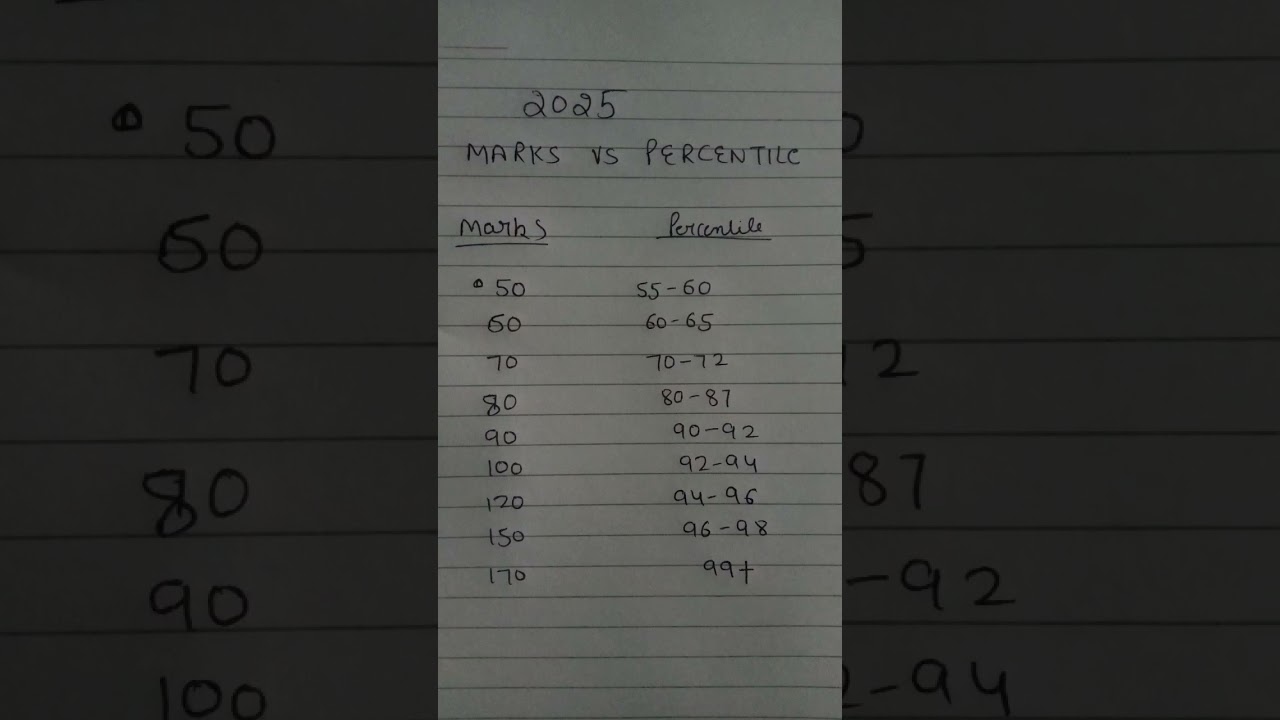 2025
MARKS VS PERCENTILE
Marks Percentile
50 55-60
60 60-65
70 70-72
80 80-87
90 90-92
100 92-94
120 94-96
150 96-98
170 99+